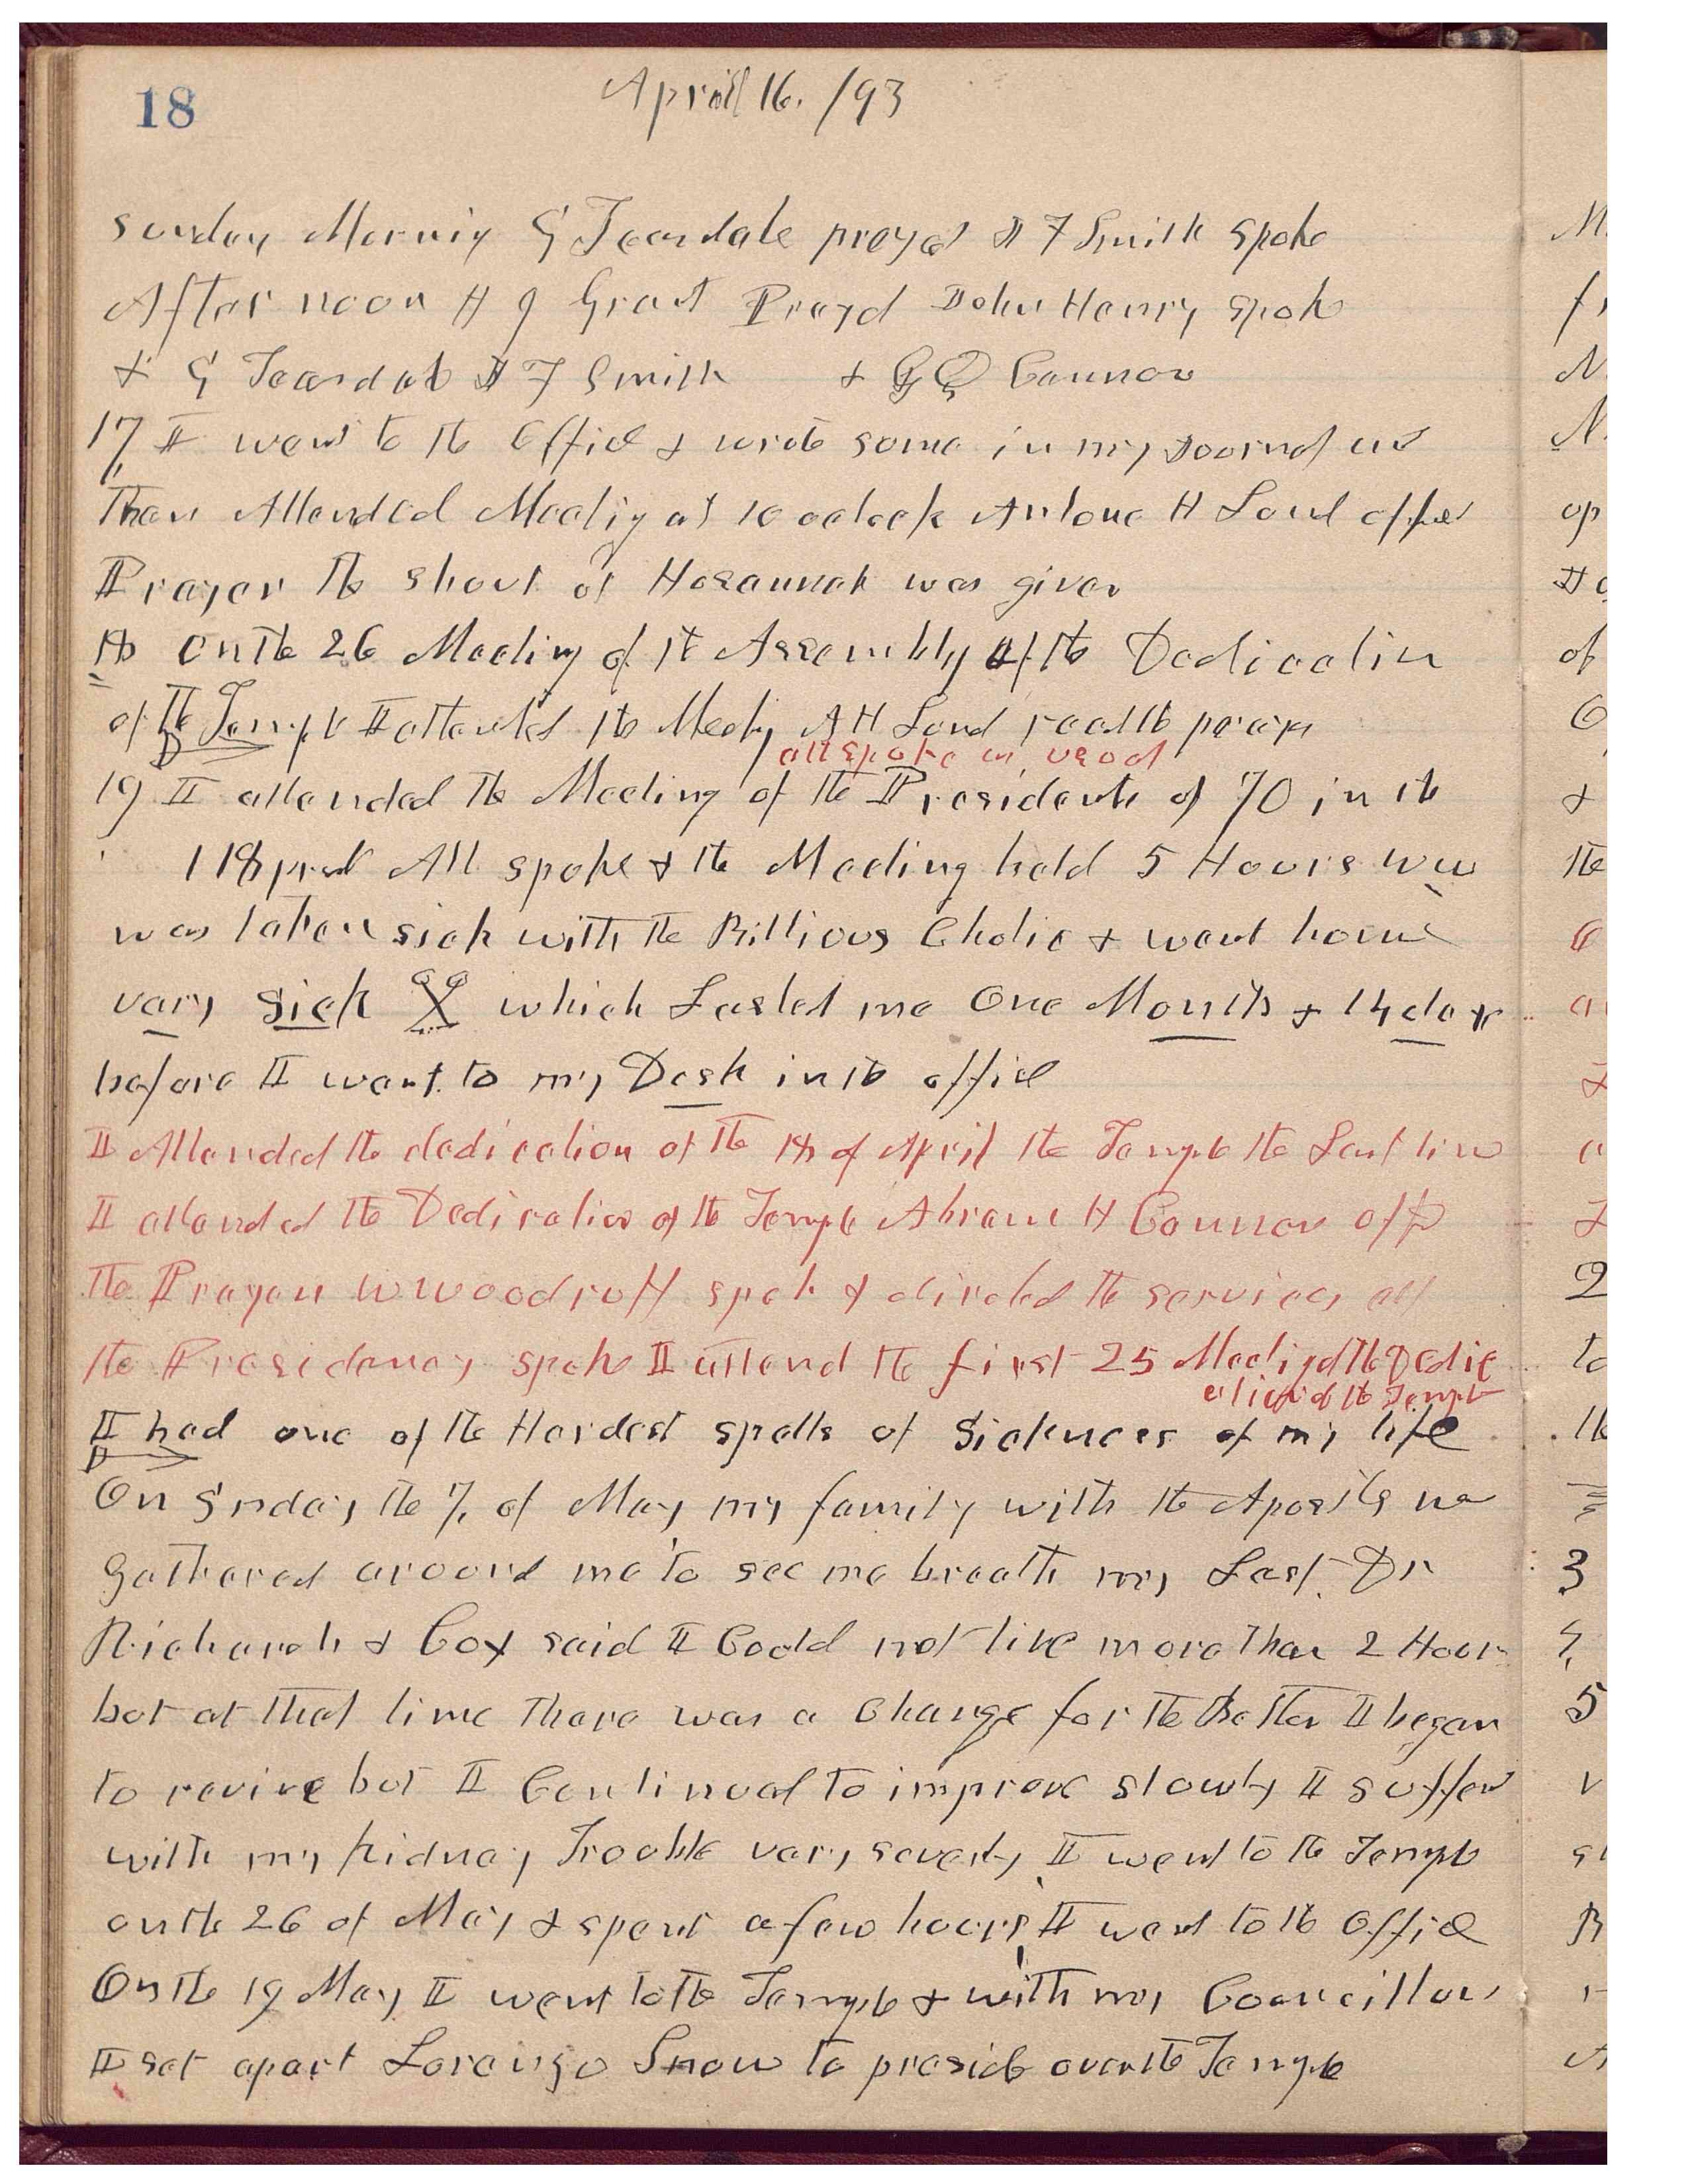 18
April 16. /93
Sunday Morning G Teasdale prayed J F Smith Spoke
Afternoon H J Grant Prayd John Henry Spok
& G Teasdale J F Smith & G Q Cannon
17 I went to the Office & wrote some in my Journal and
Then Attended Meeting at 10 oclock Antone H Lund offer
Prayer The shout of Hosannah was given
18 On the 26 Meeting of the Assembly of the Dedicatin
of the Temple I attended the Meeting A H Lund read the prayer
all spoke in
19 I attended the Meeting of the Presidents of 70 in the
118 prest All spoke & the Meeting held 5 Hours WW
was taken sick with the Billious Cholic & went home
vary sick which Lasted me One Month & 14 days
before I went to my Desk in the office
I Attended the dedication of the 18 of April the Temple the Last time
I attended the Dedication of the Temple Abram H Cannon off
the Prayer W Woodruff spok & directed the services all
the Presidency spoke I attend the first 25 Meetig of the Dedic
ation of the Temple
I had one of the Hardest spells of Sickness of my life
On Snday the 7, of May my family with the Apostls we
gathered around me to see me breath my Last. Dr
Richards & Cox said I Could not live more than 2 Hour
but at that time there was a Change for the Better I began
to revive but I Continued to improve slowly I suffer
with my kidney Trouble vary severly I went to the Temple
on the 26 of May & spent a few hours I went to the Office
On the 19 May I went to the Temple & with my Councillors
I set apart Lorenzo Snow to preside over the Temple